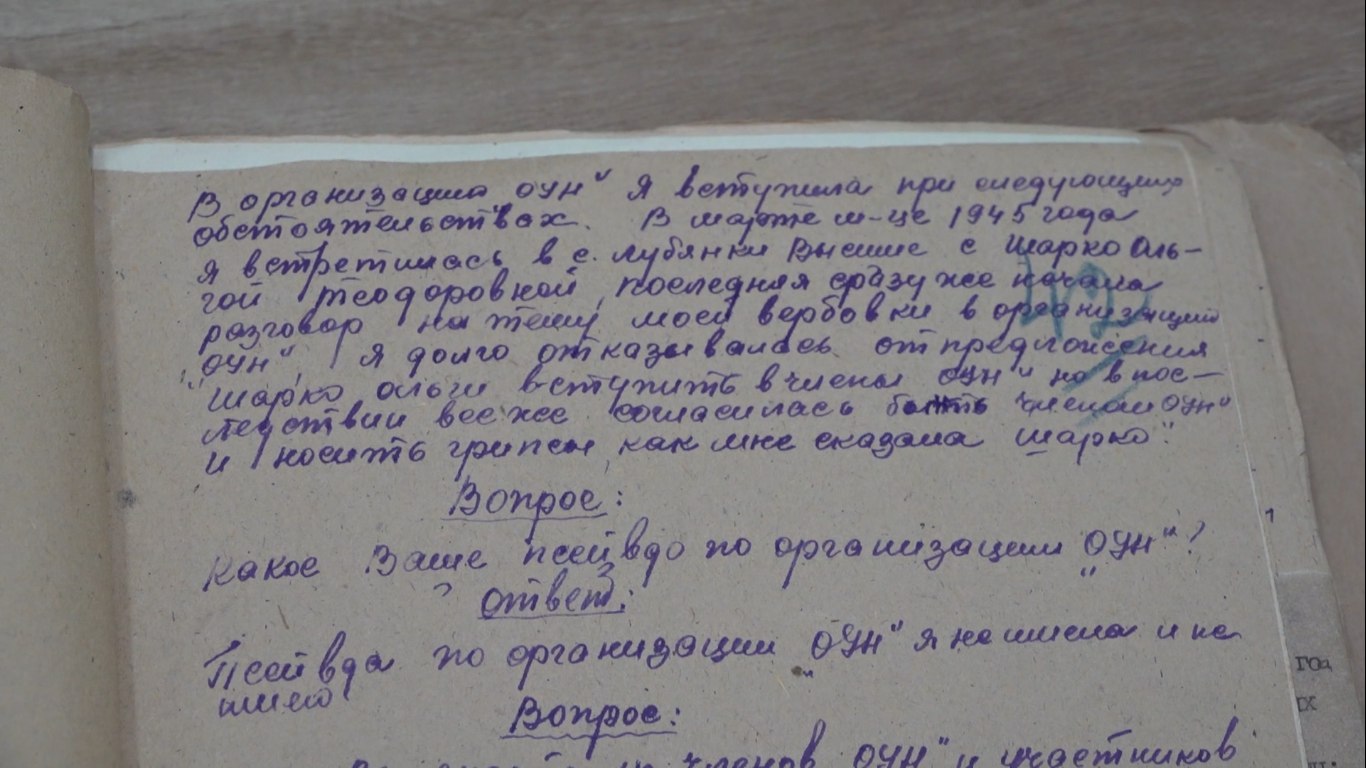 В организацию ОУН" я вступила при следующих
обстоятельствах. В марте м-це 1945 года
я встретилась в с. Лубянки Высшие с Шарко Оль-
гой Теодоровной, последняя сразу же начала
разговор на тему моей вербовки в организации
„ОУН", я долго отказывалась от предложения
Шарко Ольги вступить в члены ОУН" но впос-
ледствии все же согласилась быть членом ОУН"
и носить грипсы, как мне сказала Шарко".
Вопрос:
Какое Ваше псейвдо по организации „ОУН"?
Ответ:
Псейвда по организации „ОУН" я не имела и не
имею
Вопрос:
членов „ОУН" и участников
год
IX